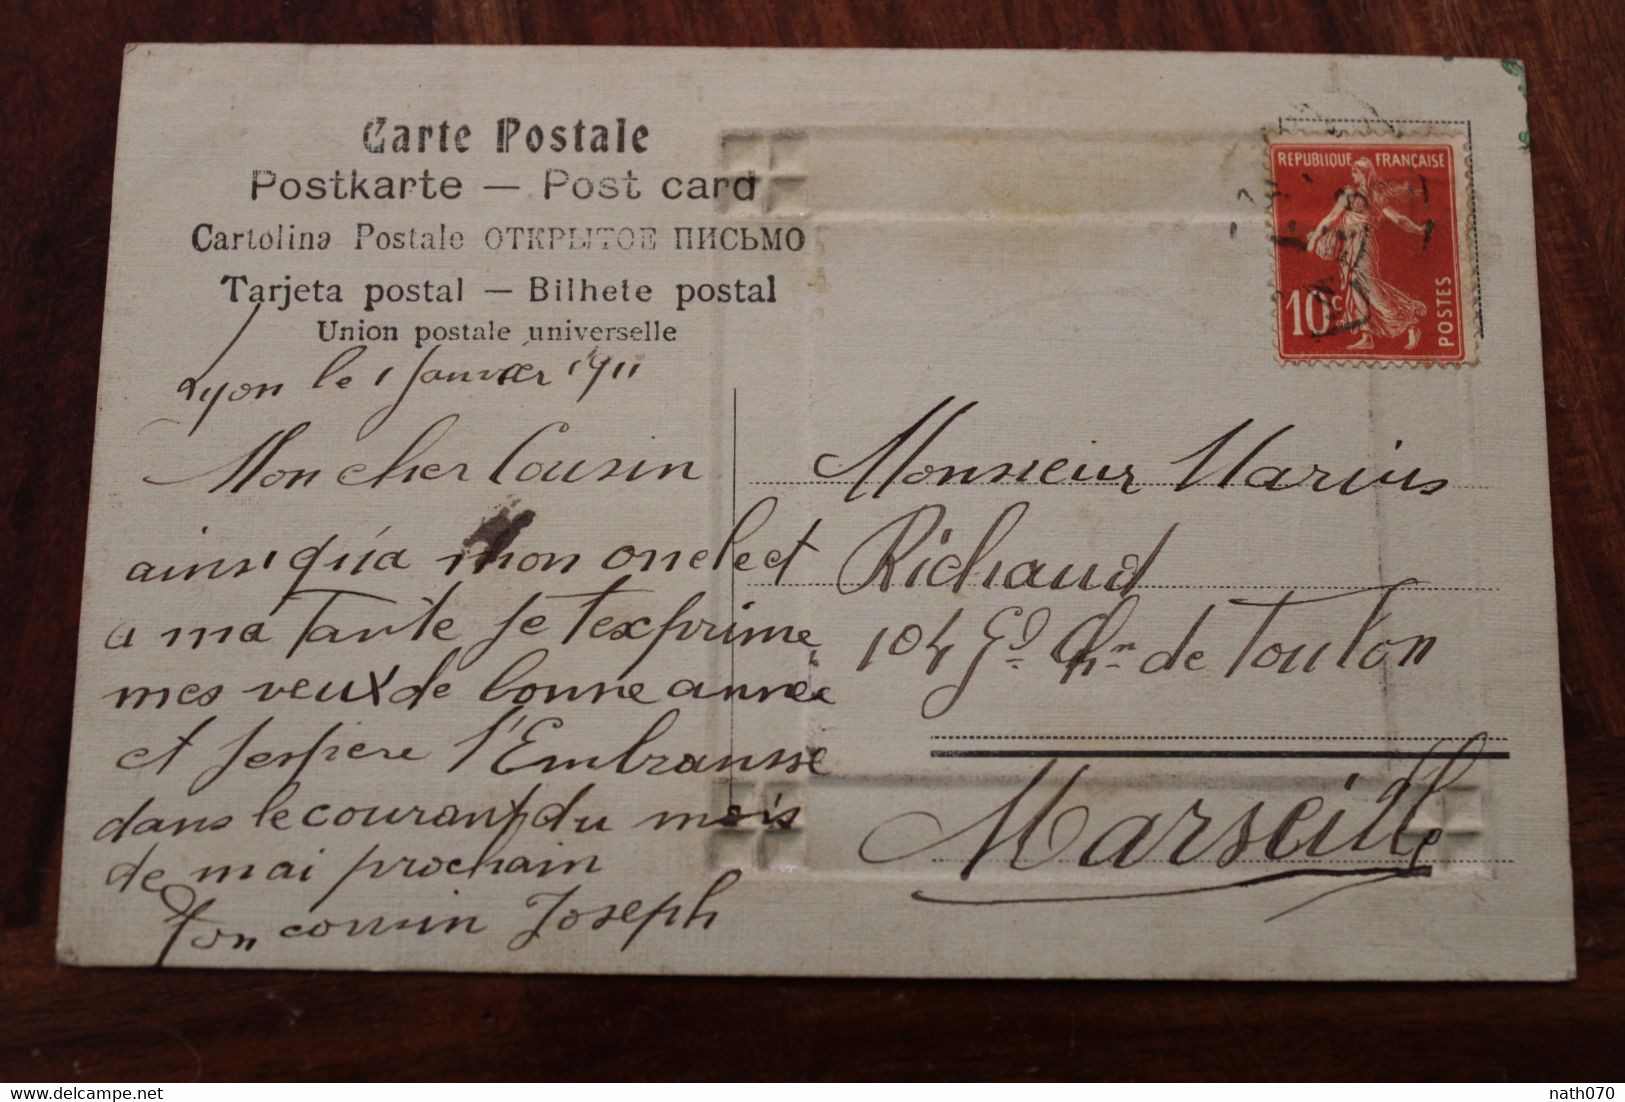 Carte Postale
Postkarte — Post card
Cartolina Postale ОТКРЫТОЕ ПИСЬМО
Tarjeta postal — Bilhete postal
Union postale universelle
Lyon le 1 Janvier 1911
Mon cher Cousin
ainsi qu'a mon oncle et
a ma Tante je t'exprime
mes veux de bonne année
et j'espere t'Embrasse
dans le courant du mois
de mai prochain
Ton cousin Joseph
REPUBLIQUE FRANÇAISE
10c
POSTES
Monsieur Marius
Richaud
104 Gd. Chn de Toulon
Marseille
delcampe.net
nath070